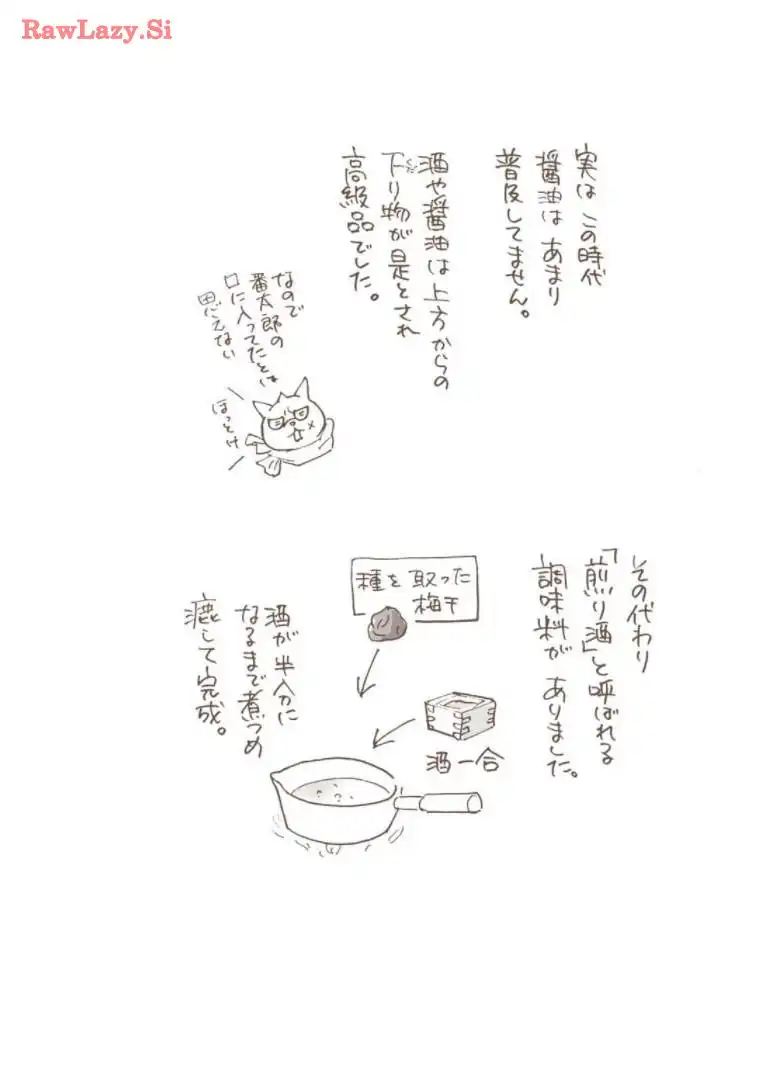 RawLazy.Si
実はこの時代
醤油はあまり
普及してません。
酒や醤油は上方からの
下り物が是とされ
くだ
高級品でした。
なので
番太郎の
口に入ってたとは
思えない
ほっとけ
その代わり
「煎り酒」と呼ばれる
調味料がありました。
種を取った
梅干
酒一合
酒が半分に
なるまで煮つめ
漉して完成。